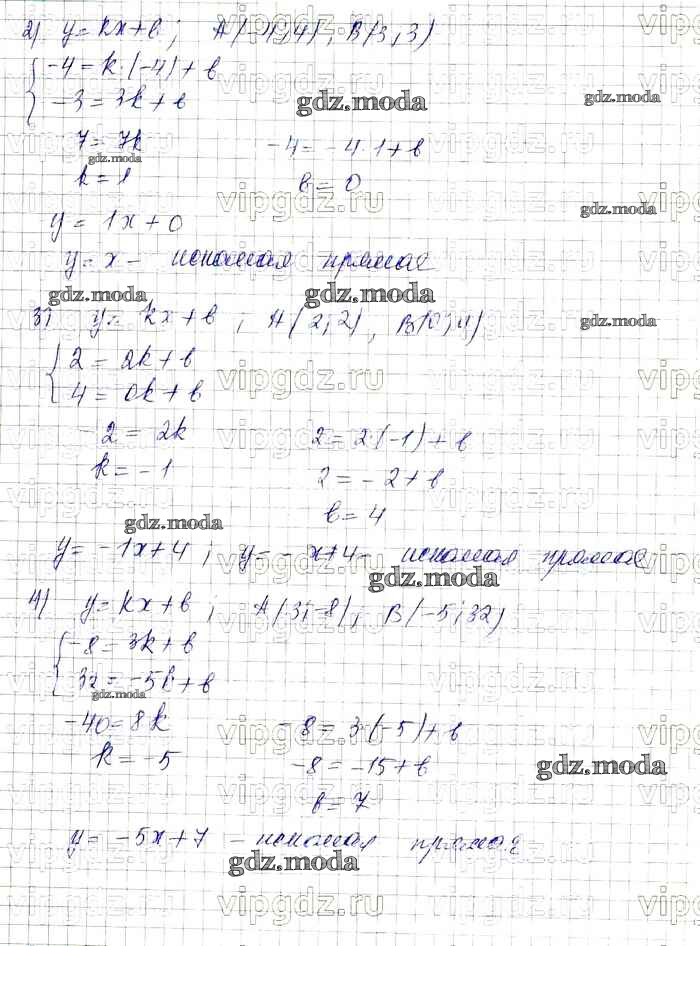 2) y = kx + b ; A(-4; -4), B(3; 3)
-4 = k·(-4) + b
-3 = 3k + b
7 = 7k
-4 = -4·1 + b
k = 1
b = 0
y = 1x + 0
y = x - искомая прямая
3) y = kx + b ; A(2; 2), B(0; 4)
2 = 2k + b
4 = 0k + b
-2 = 2k
2 = 2·(-1) + b
k = -1
2 = -2 + b
b = 4
y = -1x + 4 ; y = -x + 4 - искомая прямая
4) y = kx + b ; A(3; -8) ; B(-5; 32)
-8 = 3k + b
32 = -5k + b
-40 = 8k
-8 = 3·(-5) + b
k = -5
-8 = -15 + b
b = 7
y = -5x + 7 - искомая прямая
gdz.moda
vipgdz.ru